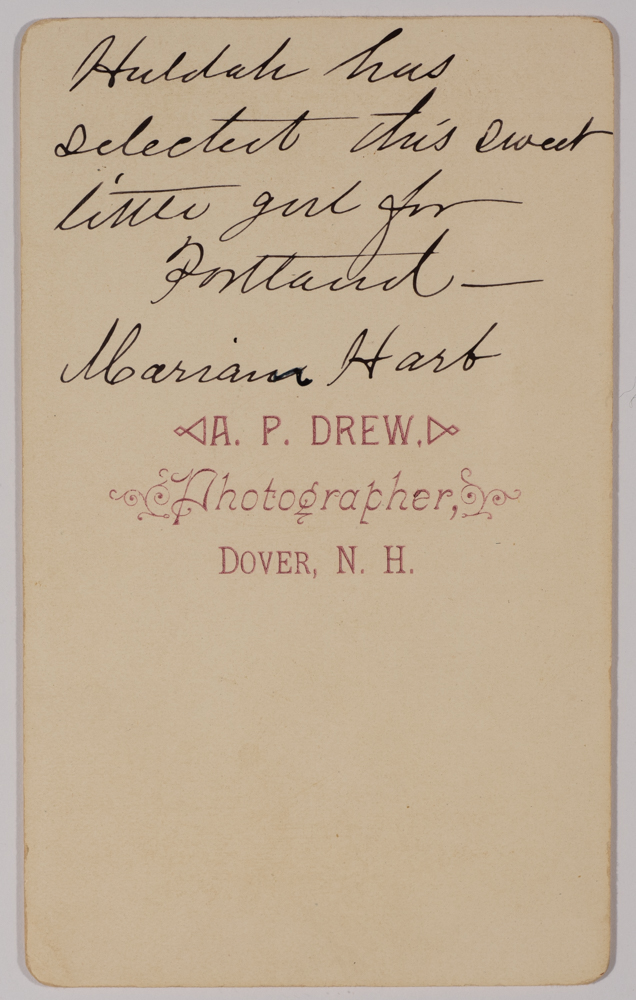 Huldah has
selected this sweet
little girl for
Portland —
Marian Hart
A. P. DREW,
Photographer,
DOVER, N. H.